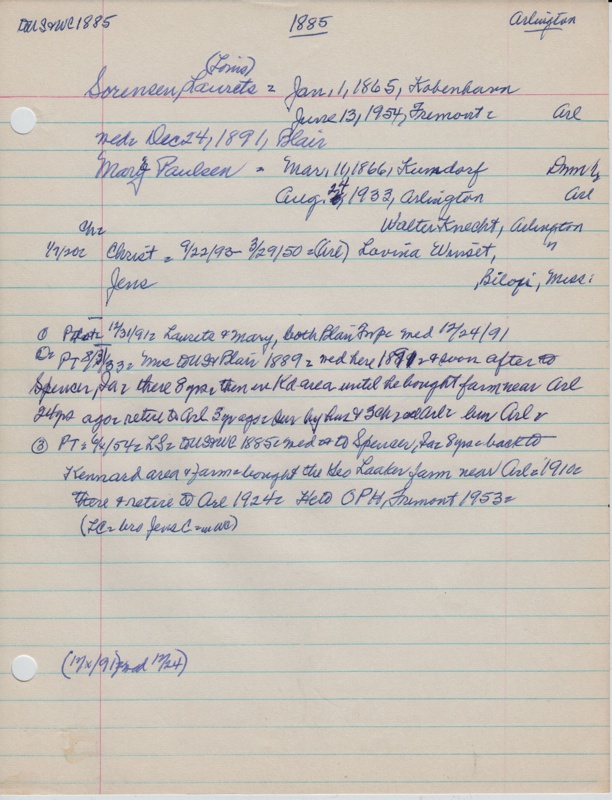 DUS&WC 1885 1885 Arlington
(Louis)
Sorensen, Laurets = Jan, 1, 1865, Kobenhavn
June 13, 1954, Fremont = Arl
med= Dec 24, 1891, Blair
Mary Paulsen = Mar, 11, 1866, Kumdorf
Aug. 24, 1933, Arlington Arl
Ch= Walter Knecht, Arlington
Christ = 9/22/93 - 3/29/50 = (Arl) Lavina
Jens , Biloxi, Miss.
① 12/31/91 = Laurets & Mary, both Blair Twp = med 12/24/91
② PT 8/31/33 = Mrs toUS & Blair 1889 = med here 1891 = & soon after to
Spencer, Ia = there 8 yrs = then in Kd area until he bought farm near Arl
24 yrs ago = retire to Arl 3 yr ago = sur by hus & 3 ch = Arl = bur Arl =
③ PT = /54 = LS = toUS & WC 1885 = med = to Spencer, Ia = 8 yrs = back to
Kennard area & farm = bought the Geo Laaker farm near Arl = 1910 =
there & retire to Arl 1924 = He to OPH, Fremont 1953 =
(LC = bro Jens C = in WC)
med 12/24)